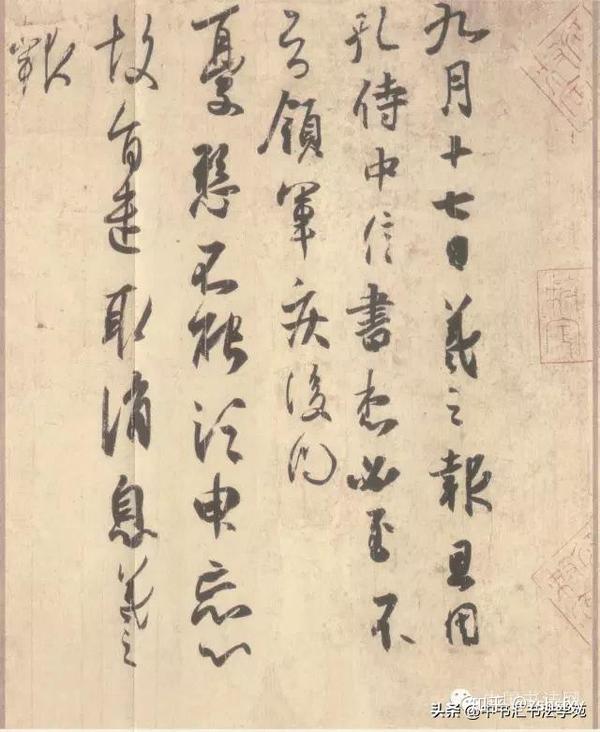 九月十七日羲之報且因
孔侍中信書想必至不
知領軍疾後問
憂懸不能須臾忘心
故旨遣取消息羲之
報
头条 @中书汇书法学苑